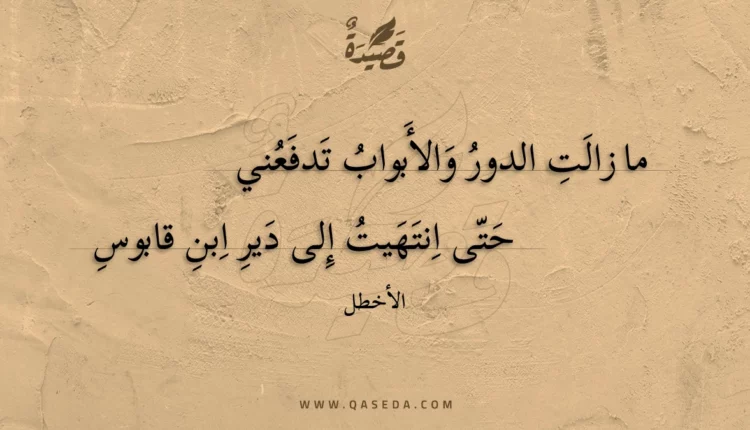 قَصِيدَةٌ
ما زالَتِ الدورُ وَالأَبوابُ تَدفَعُني
حَتّى اِنتَهَيتُ إِلى دَيرِ اِبنِ قابوسِ
الأخطل
WWW.QASEDA.COM